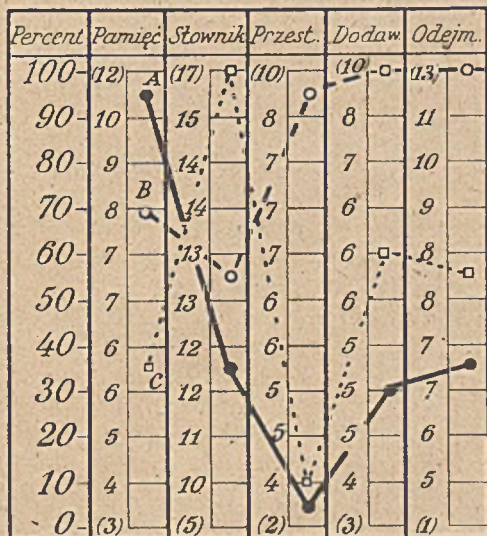 Percent Pamięć Słownik Przest. Dodaw. Odejm.
100 (12) A (17) (10) (10) (13)
90 10 15 8 8 11
80 9 14 7 7 10
70 8 B 14 7 6 9
60 7 13 7 6 8
50 7 13 6 6 8
40 6 12 6 5 7
30 6 C 12 5 5 7
20 5 11 5 5 6
10 4 10 4 4 5
0 (3) (5) (2) (3) (1)